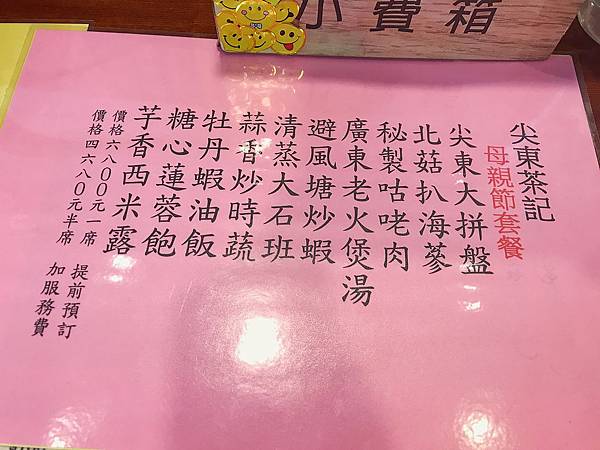 小費箱
尖東茶記
母親節套餐
尖東大拼盤
北菇扒海蔘
秘製咕咾肉
廣東老火煲湯
避風塘炒蝦
清蒸大石班
蒜香炒時蔬
牡丹蝦油飯
糖心蓮蓉飽
芋香西米露
價格六八００元一席 提前預訂
價格四六八０元半席 加服務費